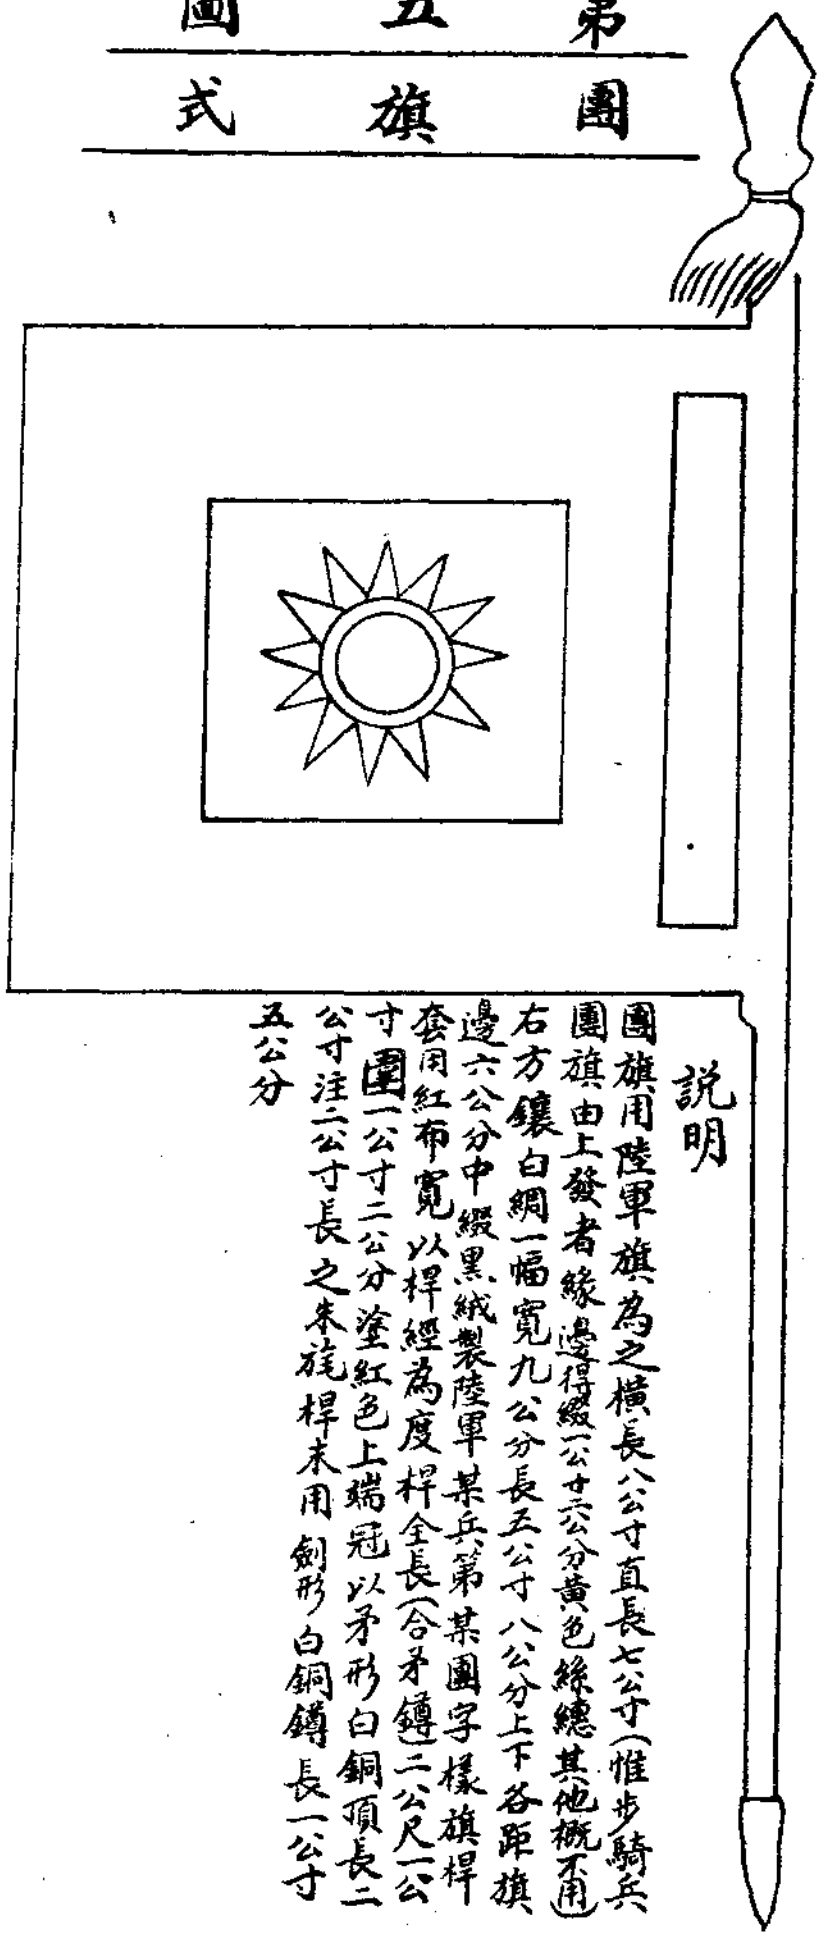 第五圖
團旗式
說明
團旗用陸軍旗為之橫長八公寸直長七公寸（惟步騎兵
團旗由上發者緣邊得綴一公寸二公分黃色絲繐其他概不用）
右方鑲白綢一幅寬九公分長五公寸八公分上下各距旗
邊六公分中綴黑絨製陸軍某兵第某團字樣旗桿
套用紅布寬以桿經為度桿全長（合矛鐏）二公尺一公
寸圍一公寸二公分塗紅色上端冠以矛形白銅頂長二
公寸注二公寸長之朱旄桿末用劍形白銅鐏長一公寸
五公分